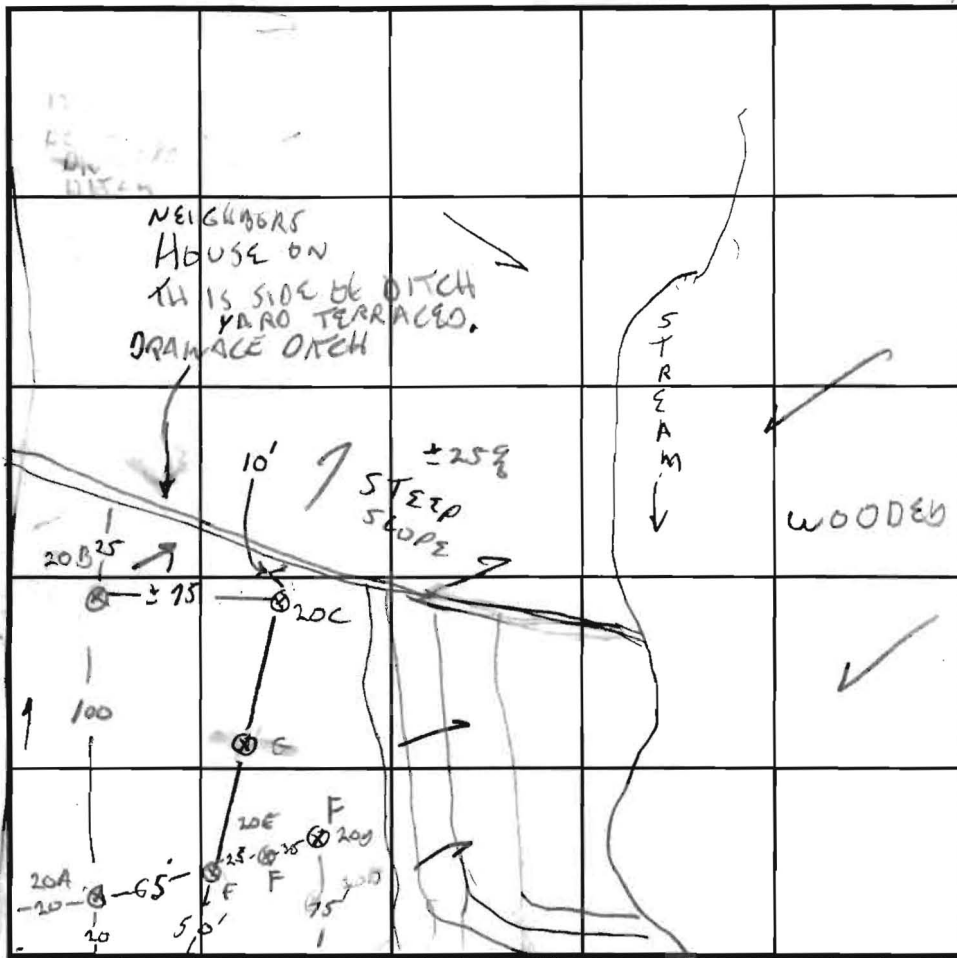 DITCH
NEIGHBORS
HOUSE ON
THIS SIDE OF DITCH
YARD TERRACED.
DRANACE DITCH
STREAM
10'
±25%
STEEP
SLOPE
WOODED
20B 25
±75
20C
100
G
20E
F
20D
20A
-20-
65'
25
35
F
F
20D
75'
20
50'